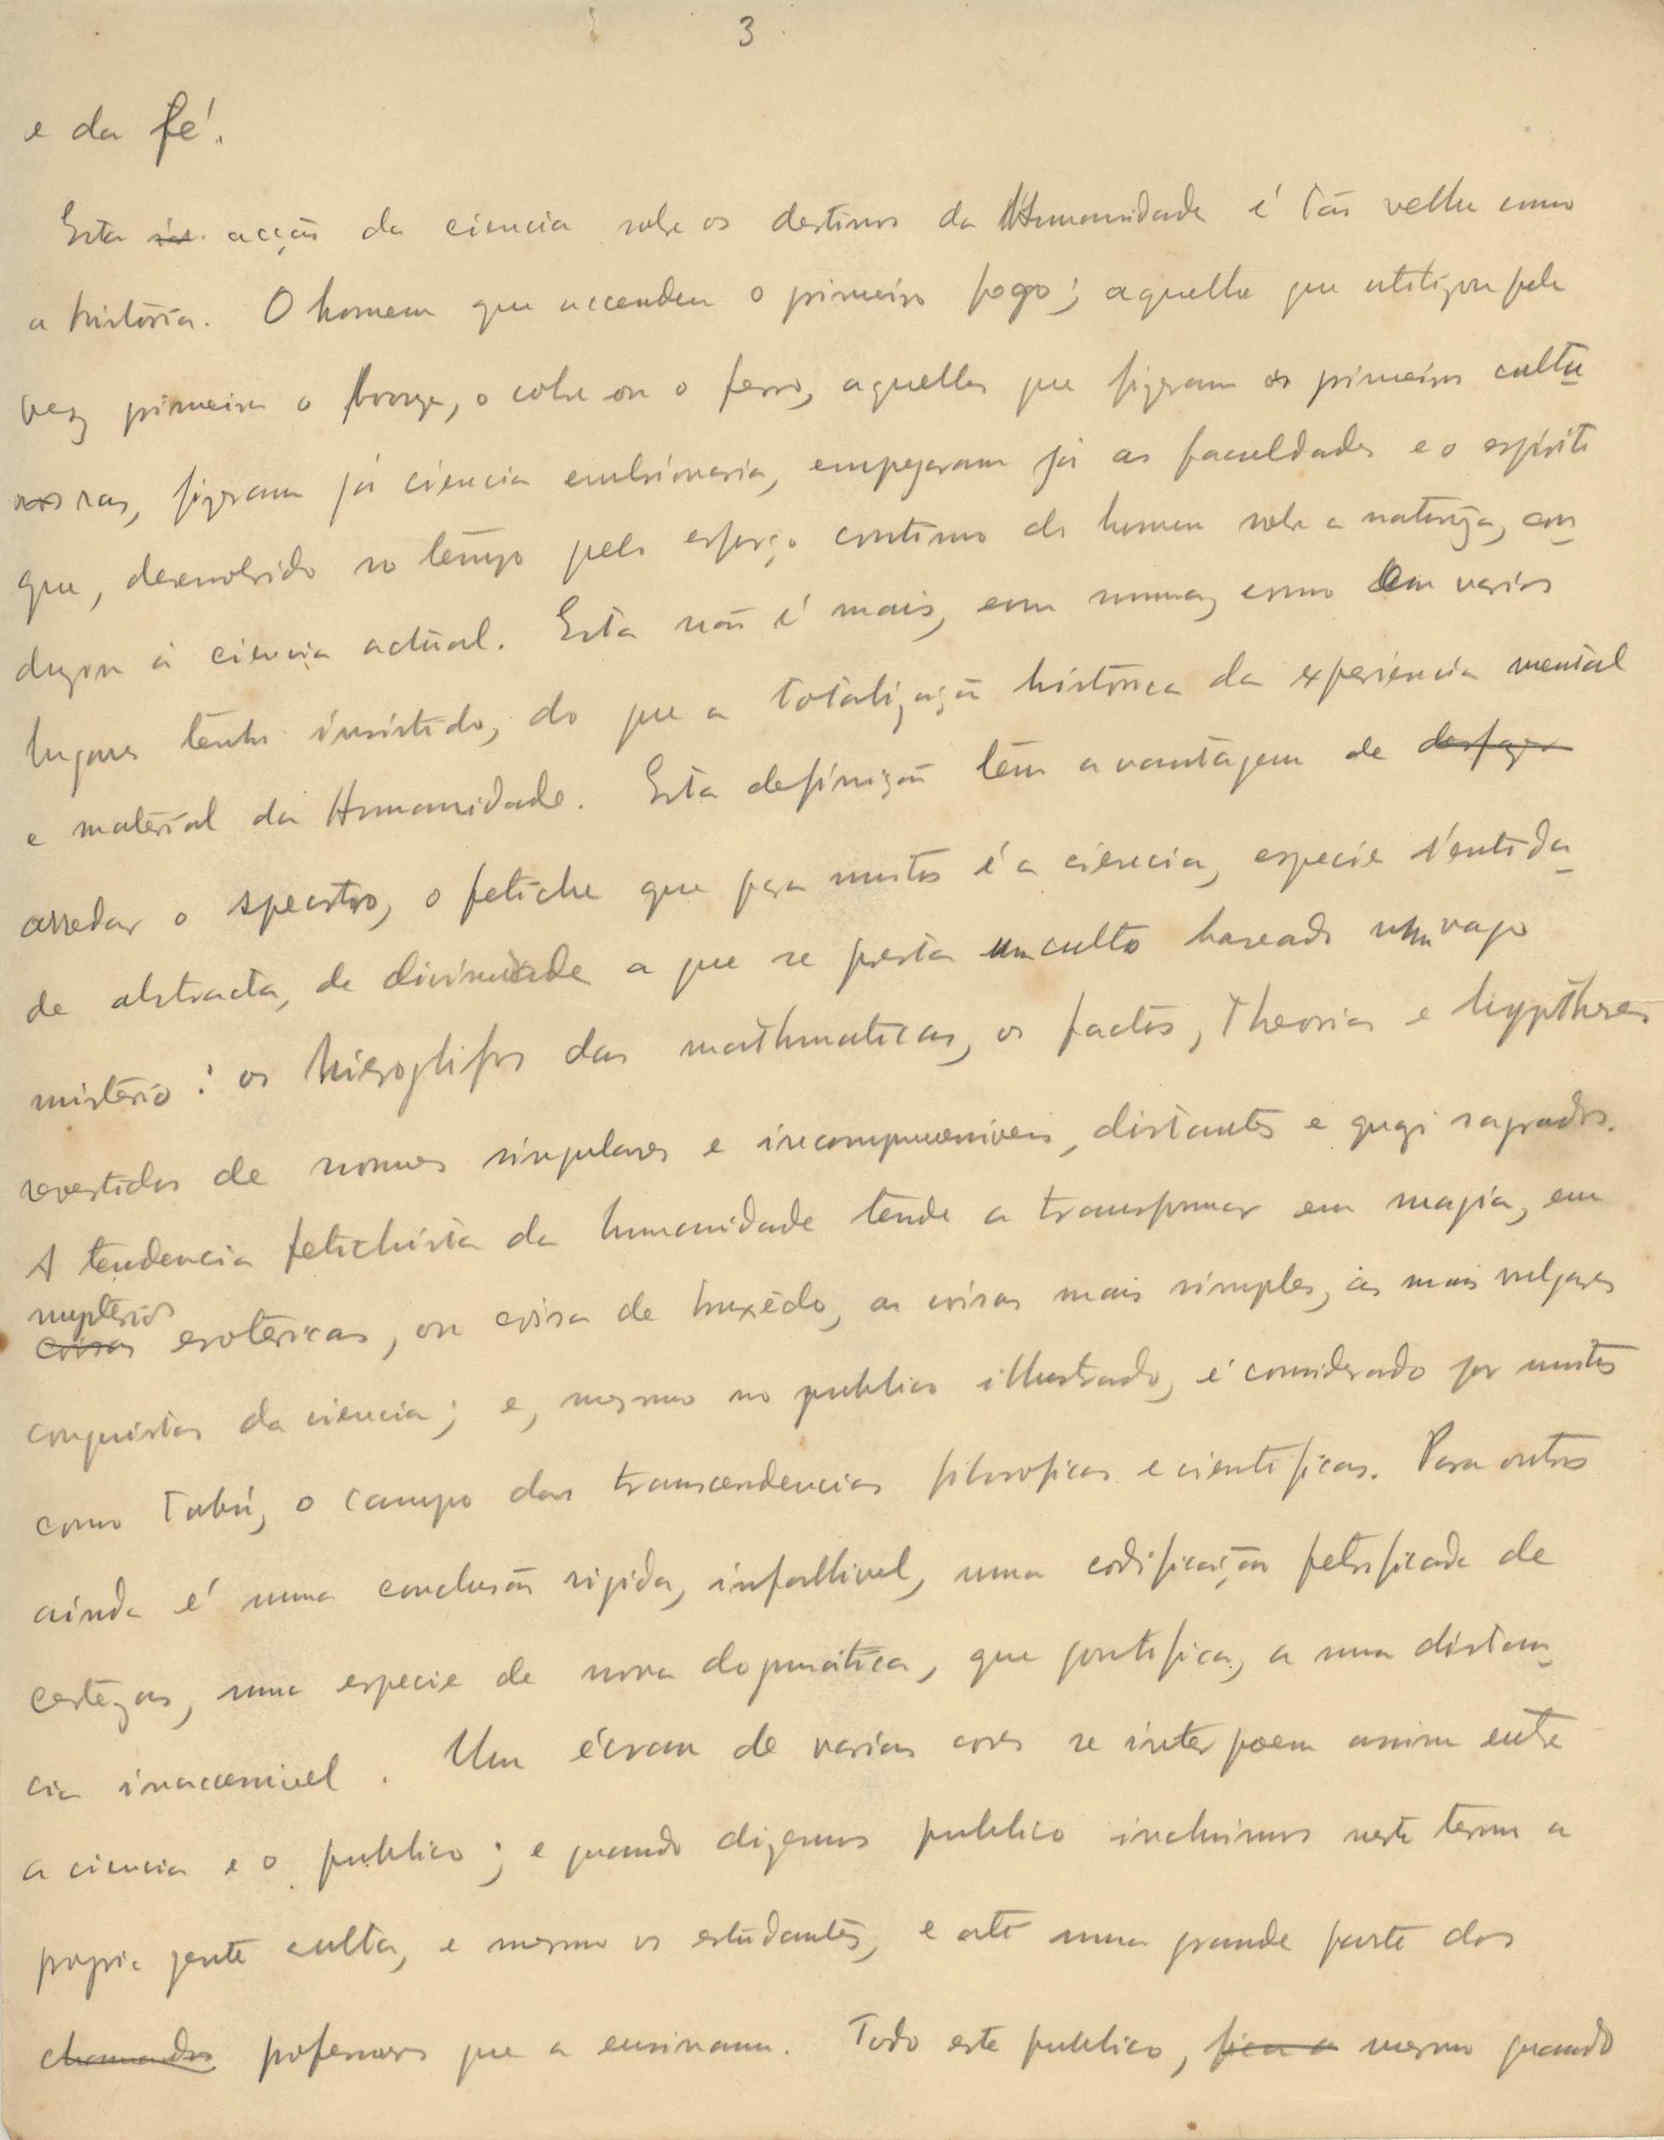 3
e da fé.
Esta acção da ciencia sobre os destinos da Humanidade é tão velha como
a historia. O homem que accendeu o primeiro fogo; aquelle que utilizou pela
vez primeira o bronze, o cobre ou o ferro, aquelles que fizeram as primeiras cultu
ras, fizeram já ciencia embrionaria, empregaram já as faculdades e o espirito
que, desenvolvido no tempo pelo esforço continuo do homem sobre a natureza, con
duziu á ciencia actual. Esta não é mais, como em varios
lugares tenho insistido, do que a totalização historica da experiencia mental
e material da Humanidade. Esta definição tem a vantagem de desfazer
arredar o spectro, o fetiche que para muitos é a ciencia, especie d'entida
de abstracta, de divindade a que se presta um culto baseado num vago
misterio: os hieroglifos das mathematicas, os factos, theorias e hypotheses
revestidos de nomes singulares e incompreensiveis, distantes e quazi sagrados.
A tendencia fetichista da humanidade tende a transformar em magia, em
mysterios
coisas esotericas, ou coisa de bruxêdo, as coisas mais simples, as mais vulgares
conquistas da ciencia; e, mesmo no publico illustrado, é considerado por muitos
como Tabú, o campo das transcendencias filosoficas e cientificas. Para outros
ainda é uma conclusão rigida, infallivel, uma codificação petrificada de
certezas, uma especie de nova dogmatica, que pontifica, a uma distan
cia inaccessivel. Um écran de varias cores se interpoem assim entre
a ciencia e o publico; e quando dizemos publico incluimos neste termo a
propria gente culta, e mesmo os estudantes, e até uma grande parte dos
chamados professores que a ensinam. Todo este publico, fica a mesmo quando